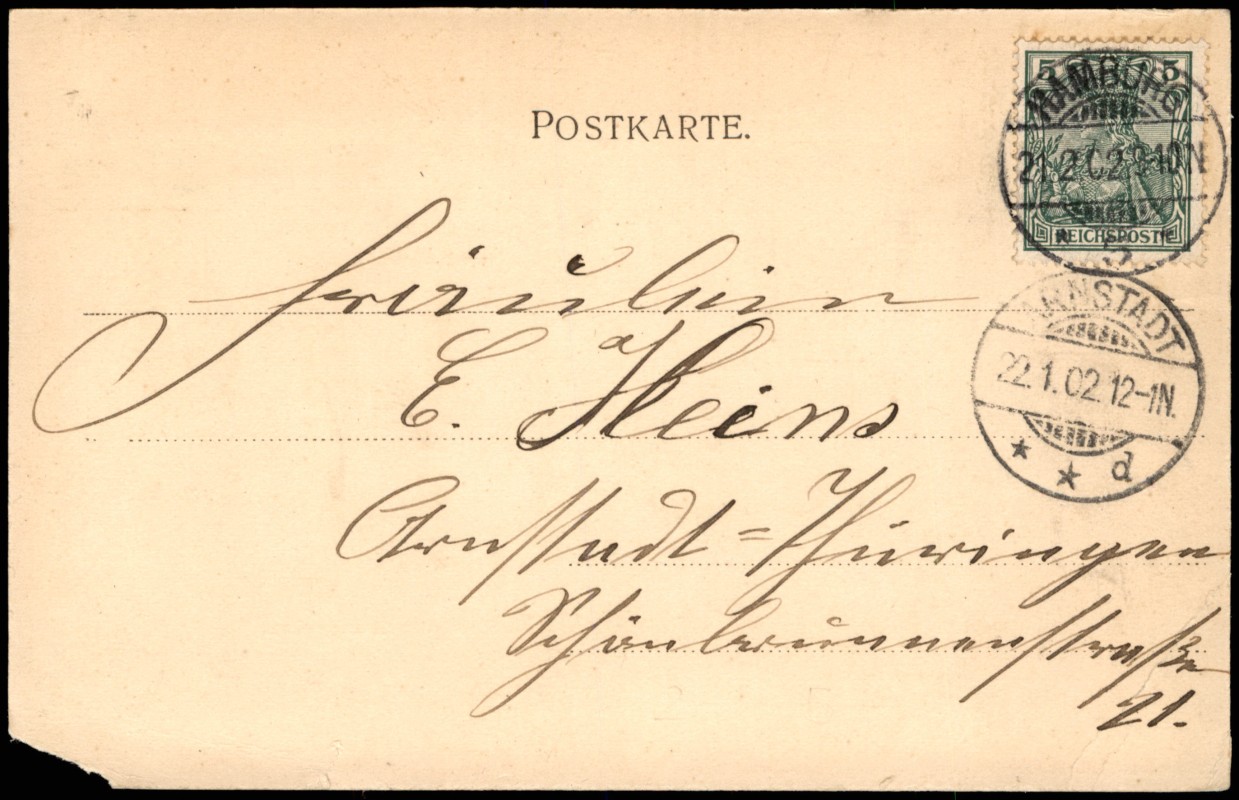 POSTKARTE.
5 5
HAMBURG
21.2.02.9-10N
5
REICHSPOST
Fräulein
ARNSTADT
22.1.02.12-1N.
* * d
E. Heins
Arnstadt=Thüringen
Schönbrunnenstraße
21.